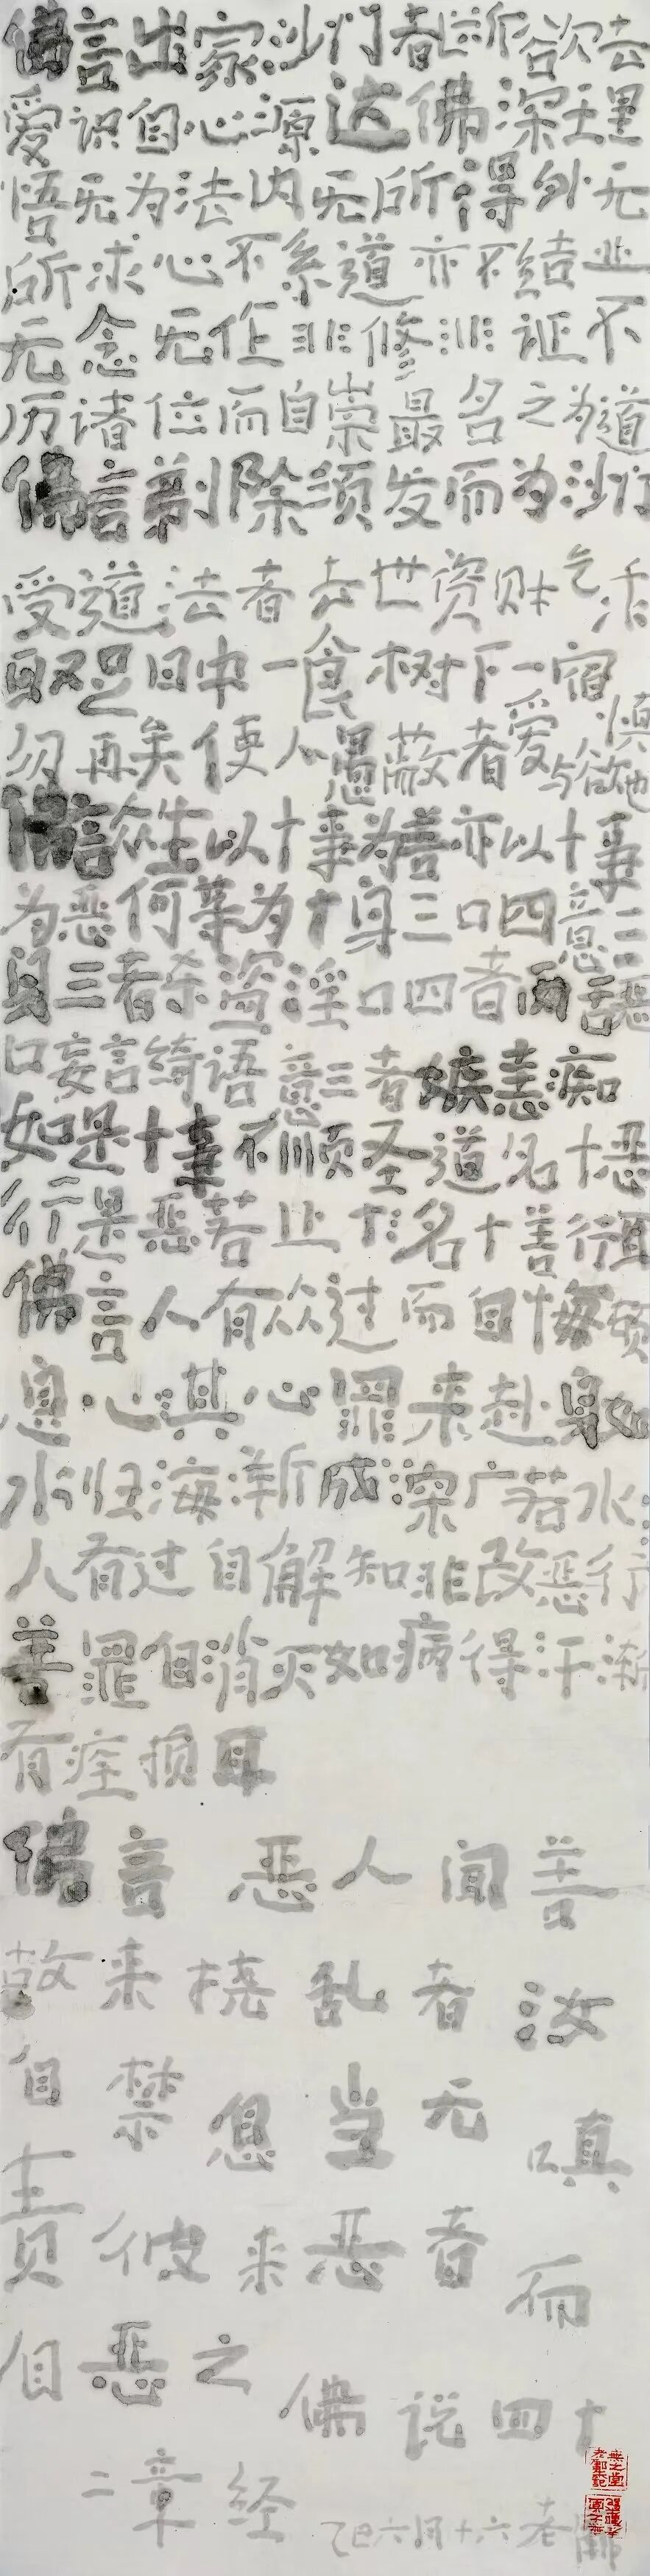 佛言出家沙门者断欲去
爱识自心源达佛深理
悟无为法内无所得外无
所求心不系道亦不结业
无念无作非修非证不
历诸位而自崇最名之为道
佛言剃除须发而为沙门
受道法者去世资财乞活
取足日中一食树下一宿
慎勿再矣使人愚蔽者爱与欲也
佛言众生以十事为善亦以十事
为恶何等为十身三口四意三
身三者杀盗淫口四者两舌恶
口妄言绮语意三者嫉恚痴
如是十事不顺圣道名十恶
行是恶若止名十善行耳
佛言人有众过而自悔顿
息心其心罪来赴身如
水归海渐成深广若
人有过自解知非改恶行
善罪自消灭如病得汗渐
有痊损耳
佛言恶人闻善
故来挠乱者汝
自禁息当无嗔
责彼来恶者而
自恶之
佛说四十
二章经
乙巳六月十六老